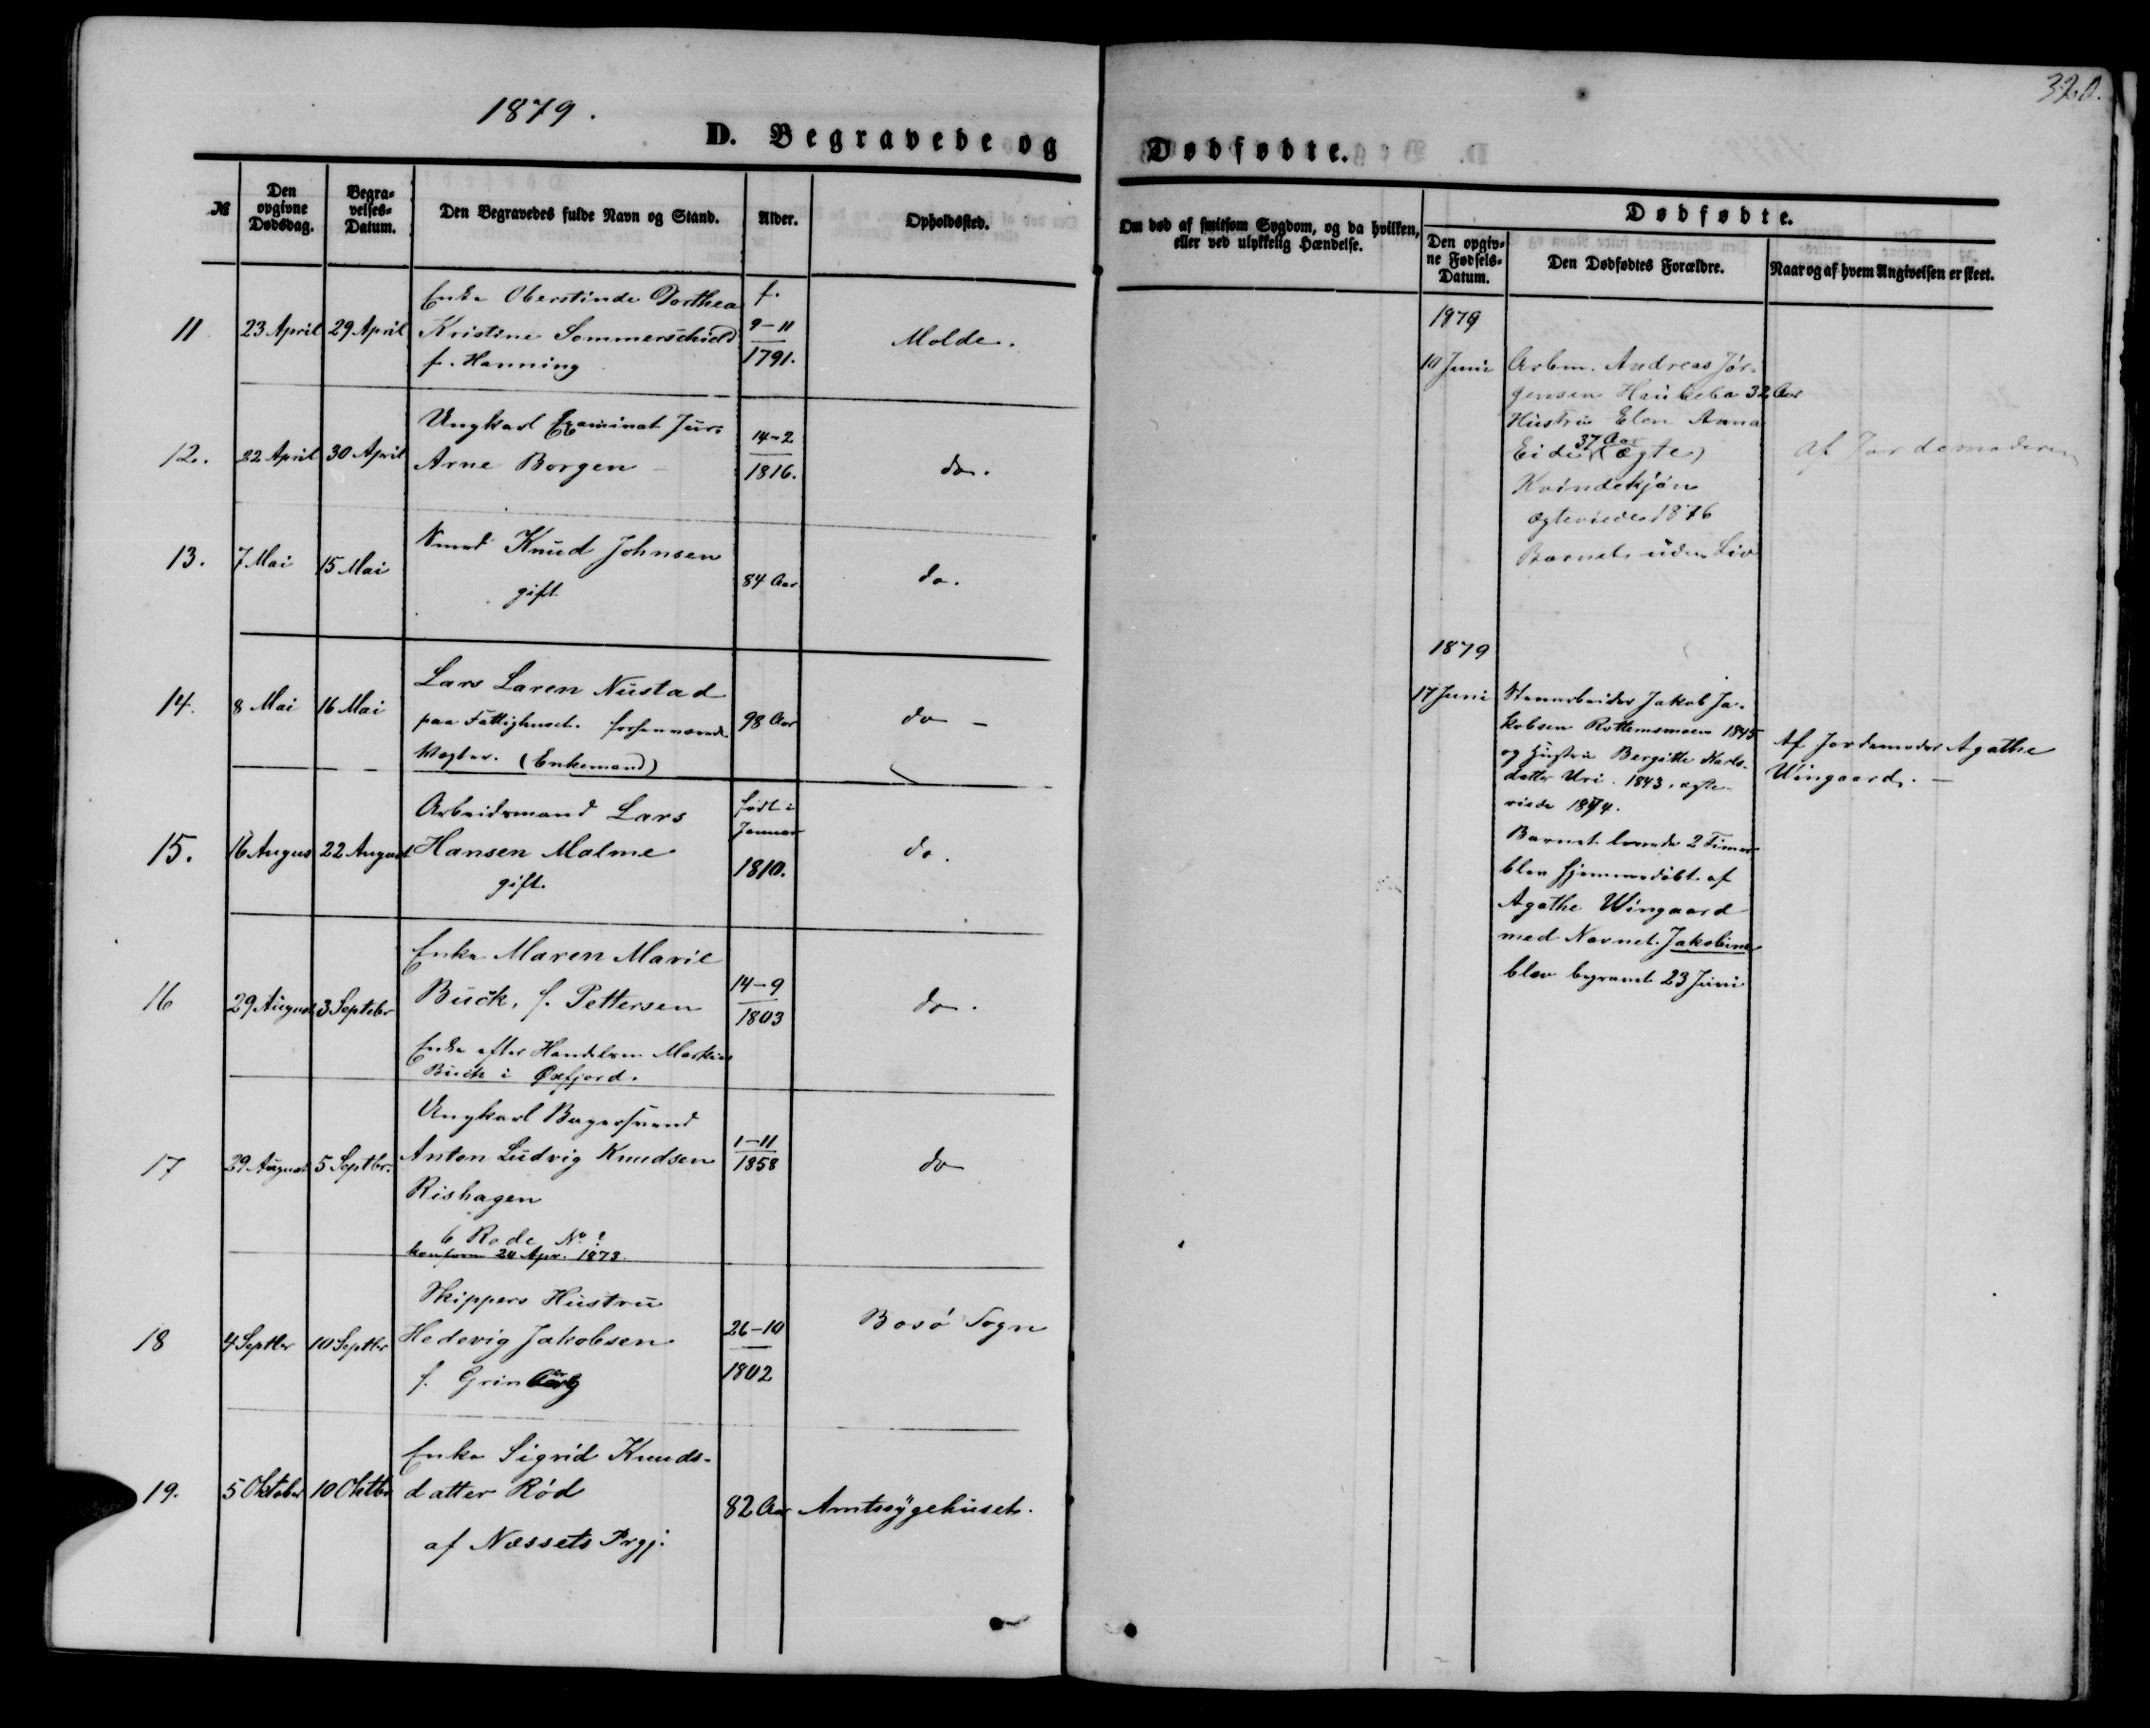 1879.
320.
D. Begravede og
Dødfødte.
№
Den opgivne Dødsdag.
Begravelses-Datum.
Den Begravedes fulde Navn og Stand.
Alder.
Opholdssted.
Om død af smitsom Sygdom, og da hvilken,
eller ved ulykkelig Hændelse.
Dødfødte.
Den opgiv-
ne Fødsels-
Datum.
Den Dødfødtes Forældre.
Naar og af hvem Angivelsen er skeet.
11 23 April 29 April
Enke Oberstinde Dorthea
Kristine Sommerschield
f. Hanning
f.
9-11
1791.
Molde.
12. 22 April 30 April
Ungkarl Examinat Jur:
Arne Borgen
14-2
1816.
do.
13. 7 Mai 15 Mai
Smed Knud Johnsen
gift
84 Aar
do.
14. 8 Mai 16 Mai
Lars Laren Nustad
paa Fattighuset. forhenværende
Vægter. (Enkemand)
98 Aar
do
15. 16 Augus 22 August
Arbeidsmand Lars
Hansen Malme
gift.
født i
Januar
1810.
do.
16 29 August 3 Septebr
Enke Maren Marie
Buck, f. Pettersen
Enke efter Handelsm. Markus
Buck i Øxfjord.
14-9
1803
do.
17 29 August 5 Septbr.
Ungkarl Bagersvend
Anton Ludvig Knudsen
Rishagen
6 Rode No ?
konform 20 Apr. 1873.
1-11
1858
do
18 4 Septbr 10 Septbr
Skippers Hustru
Hedevig Jakobsen
f.
26-10
1802
Bosø Sogn
19. 5 Oktober 10 Oktbr
Enke Sigrid Knuds-
datter Rød
af Næssets Prgj.
82 Aar
Amtssygehuset.
1879
10 Juni
Arbm. Andreas Jør-
gensen 32 Aar
Hustru Elen Anna
37 Aar
Eide (Ægte)
Kvindekjøn
Ægteviede 1876
Barnet uden Liv
af Jordemoderen
1879
17 Juni
Stenarbeider Jakob Ja-
kobsen Rottemsmoen 1845
og Hustru Bergitte Karls-
datter Uri. 1843, ægte-
viede 1874.
Barnet levede 2 Timer
blev hjemmedøbt af
Agathe Wingaard
med Navnet Jakobine
blev begravet 23 Juni
Af Jordemoder Agathe
Wingaard. -